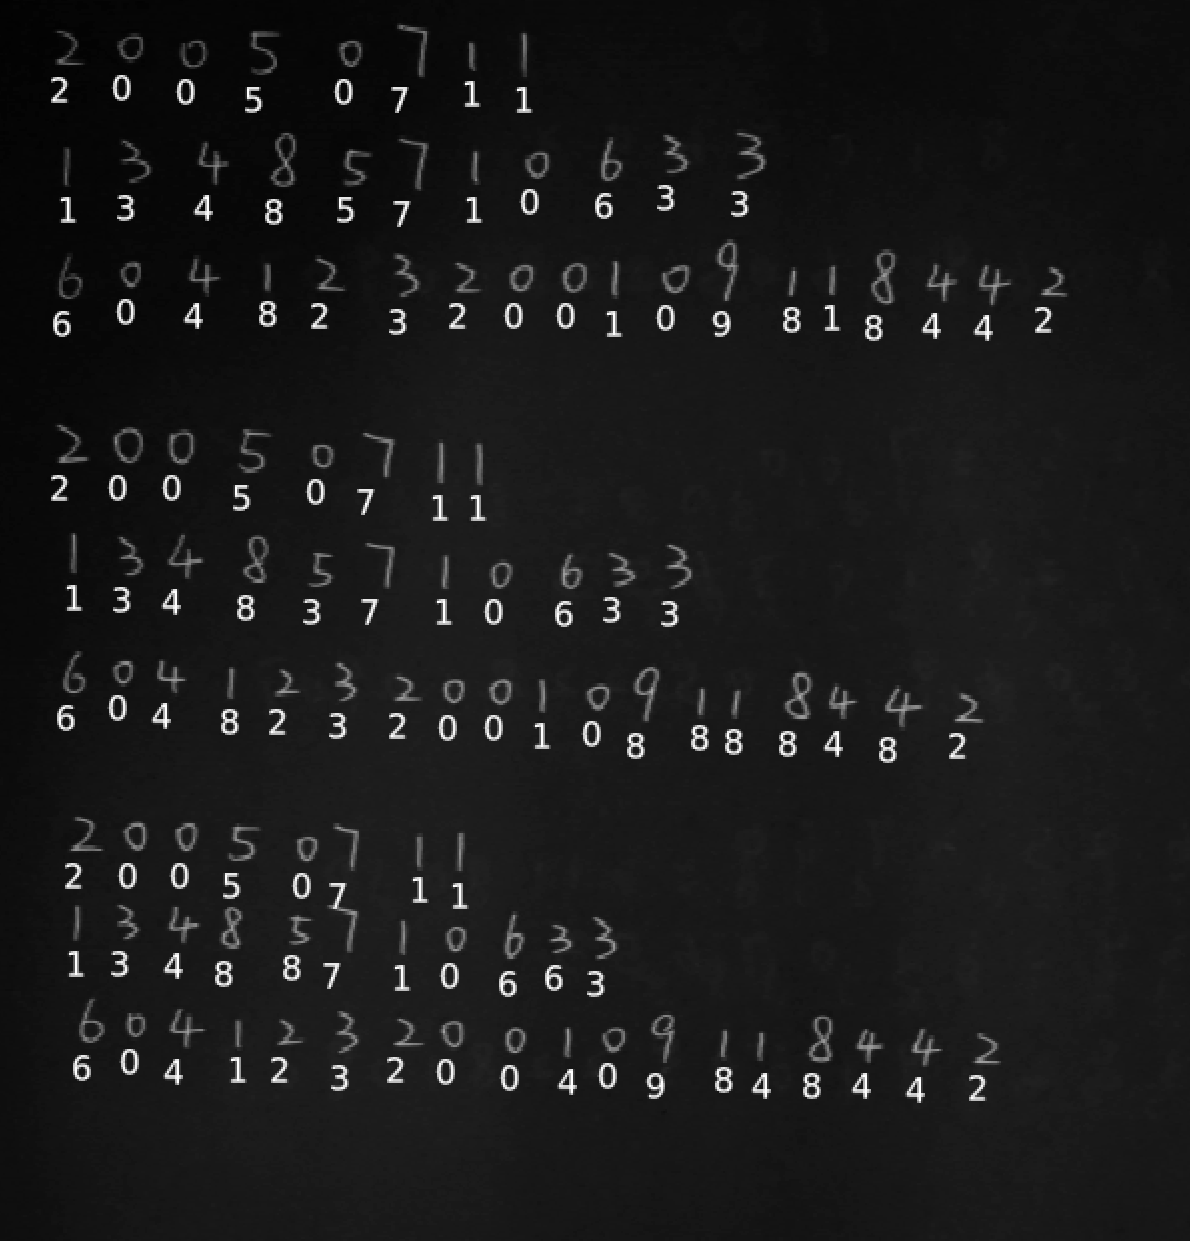 2 0 0 5 0 7 1 1
2 0 0 5 0 7 1 1
1 3 4 8 5 7 1 0 6 3 3
1 3 4 8 5 7 1 0 6 3 3
6 0 4 1 2 3 2 0 0 1 0 9 1 1 8 4 4 2
6 0 4 8 2 3 2 0 0 1 0 9 8 1 8 4 4 2
2 0 0 5 0 7 1 1
2 0 0 5 0 7 1 1
1 3 4 8 5 7 1 0 6 3 3
1 3 4 8 3 7 1 0 6 3 3
6 0 4 1 2 3 2 0 0 1 0 9 1 1 8 4 4 2
6 0 4 8 2 3 2 0 0 1 0 8 8 8 8 4 8 2
2 0 0 5 0 7 1 1
2 0 0 5 0 7 1 1
1 3 4 8 5 7 1 0 6 3 3
1 3 4 8 8 7 1 0 6 6 3
6 0 4 1 2 3 2 0 0 1 0 9 1 1 8 4 4 2
6 0 4 1 2 3 2 0 0 4 0 9 8 4 8 4 4 2